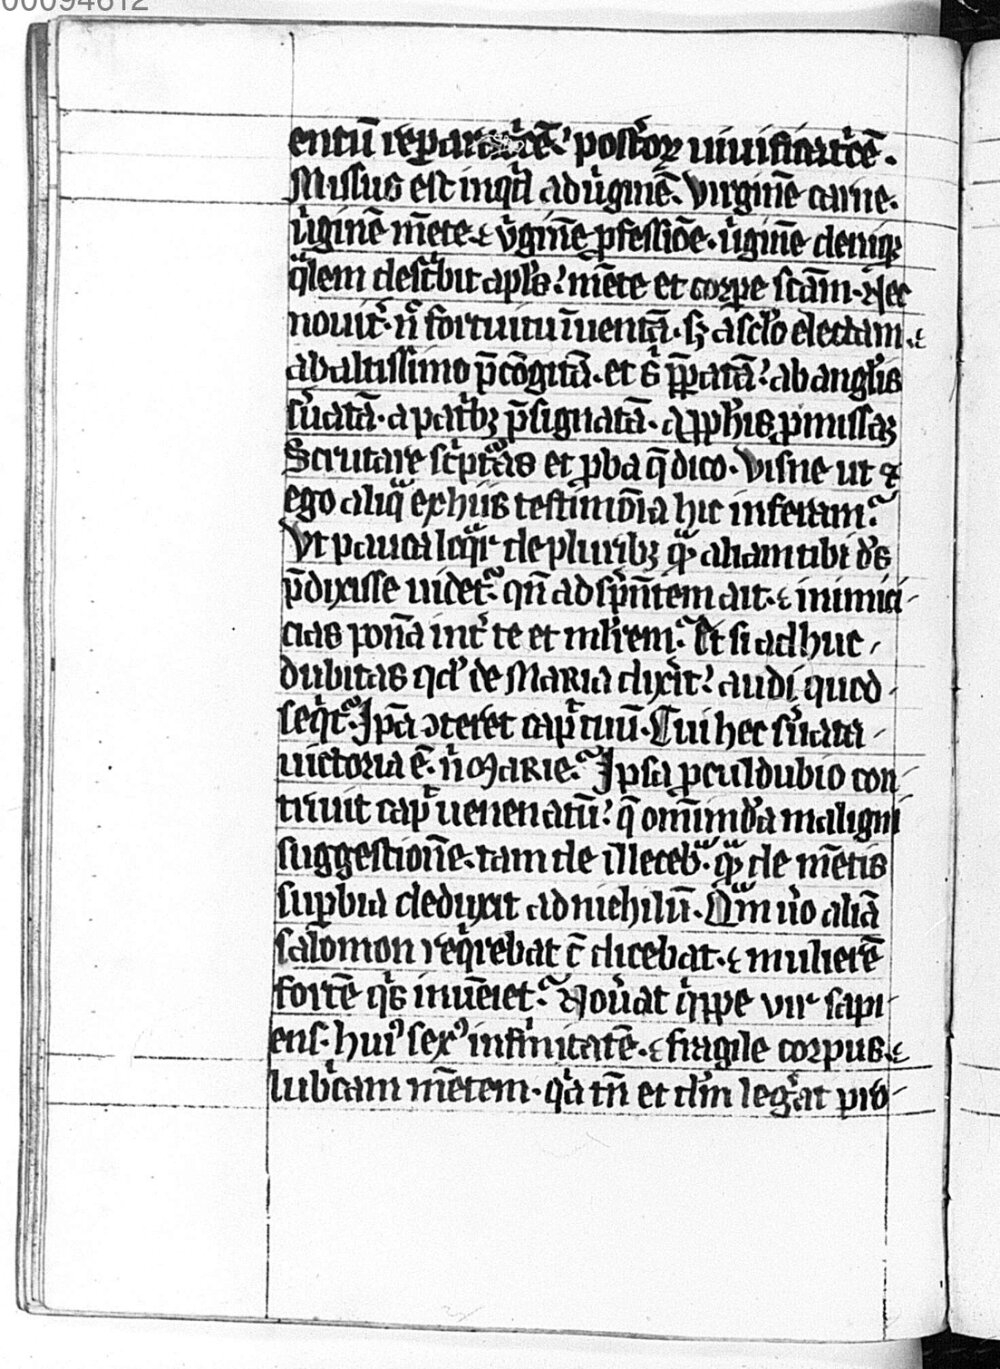 00094612
entū reparatͥcē. postoꝝ uiuificatͥcē.
Missus est inqͥt ad uͥginē. Virginē carne.
uͥginē mēte. ⁊ vͥginē ꝓfessiōe. uͥginē deniqꝫ
qͣlem descͥbit apl's. mēte et corꝑe scām. Nec
nouit̾. n̄ fortuitu īuentā. sꝫ a sclo electam. ⁊
ab altissimo p̄cōgitā. et sͥ p̄ꝑatā. ab angl'is
sͥuatā. a patͥbꝫ p̄signatā. a ꝓph'is ꝓmissaꝫ
Scrutare scͥptͣas et ꝓba q̄ dico. Visne ut ⁊
ego aliqͣ ex hiis testimōia huc inferam.
Vt pauca loqͣr de pluribꝫ qͣꝫ aliam tibi d's
p̄dixisse uidet̾. qn̄ ad sͥpn̄tem ait. ⁊ inimici
cias ponā int̾ te et mlr̄em. Et si adhuc
dubitas qd' de Maria dixit̾. audi quod
seqͥt̾. Ipā ↄteret cap̾ tuū. Cui hec sͥuata
uictoria ē. nͥ Marie. Ipsa ꝓculdubio con
triuit cap̾ uenenatū. q̄ om̄imod'a maligni
suggestionē. tam de illecebͣ. qͣꝫ de mētis
suꝑbia deduxit ad nichilū. Qͣm uͦ aliā
salomon reqͥrebat c̄ dicebat. ⁊ mulierē
fortē qͥs inuēiet. Nou̾at qͥppe vir sapi
ens. huiꝰ sexꝰ infirmitatē. ⁊ fragile corpus. ⁊
lubͥcam mētem. qͥa tn̄ et dm̄ leg̾at pro